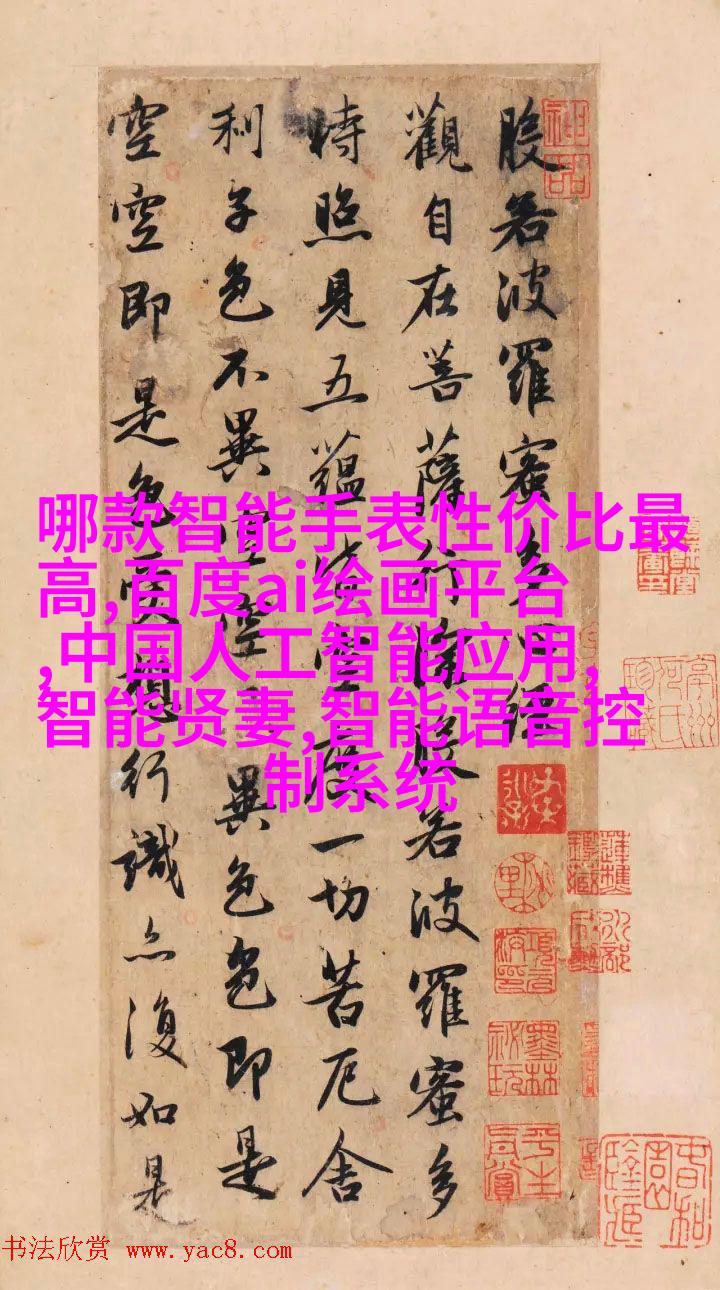 般若波羅蜜多心經
觀自在菩薩行深般若波羅蜜多
時照見五蘊皆空度一切苦厄舍
利子色不異空空不異色色即是
空空即是色受想行識亦復如是
哪款智能手表性价比最
高,百度ai绘画平台
,中国人工智能应用,
智能贤妻,智能语音控
制系统
书法欣赏 www.yac8.com